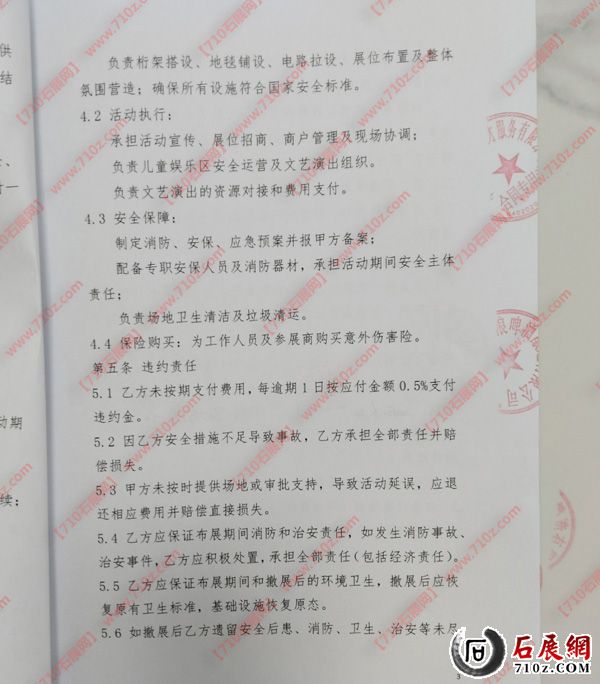 供
结
、
一
动期
续；
负责桁架搭设、地毯铺设、电路拉设、展位布置及整体
氛围营造；确保所有设施符合国家安全标准。
4.2 活动执行：
承担活动宣传、展位招商、商户管理及现场协调；
负责儿童娱乐区安全运营及文艺演出组织。
负责文艺演出的资源对接和费用支付。
4.3 安全保障：
制定消防、安保、应急预案并报甲方备案；
配备专职安保人员及消防器材，承担活动期间安全主体
责任；
负责场地卫生清洁及垃圾清运。
4.4 保险购买：为工作人员及参展商购买意外伤害险。
第五条 违约责任
5.1 乙方未按期支付费用，每逾期1日按应付金额0.5%支付
违约金。
5.2 因乙方安全措施不足导致事故，乙方承担全部责任并赔
偿损失。
5.3 甲方未按时提供场地或审批支持，导致活动延误，应退
还相应费用并赔偿直接损失。
5.4 乙方应保证布展期间消防和治安责任，如发生消防事故、
治安事件，乙方应积极处置，承担全部责任（包括经济责任）。
5.5 乙方应保证布展期间和撤展后的环境卫生，撤展后应恢
复原有卫生标准，基础设施恢复原态。
5.6 如撤展后乙方遗留安全后患、消防、卫生、治安等未尽
3
服务有限
合同专用
公司
【710石展网】www.710z.com
石展網
710z.com